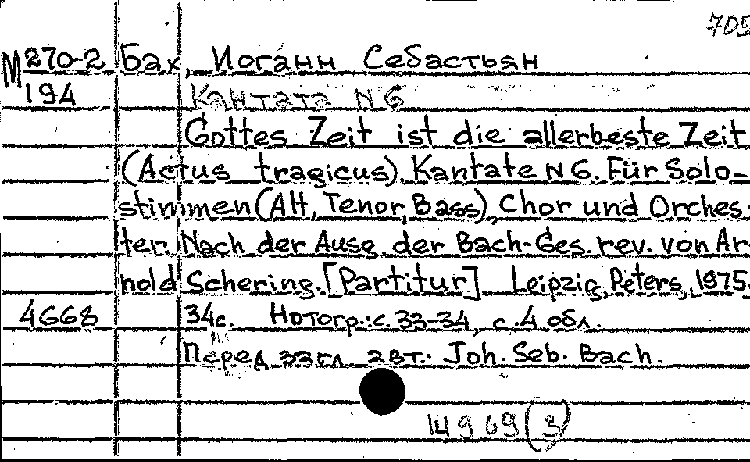 705
М270-2 Бах, Иоганн Себастьян
194 Кантата N 6
Gottes Zeit ist die allerbeste Zeit
(Actus tragicus). Kantate N 6. Für Solo-
stimmen (Alt, Tenor, Bass), Chor und Orches-
ter. Nach der Ausg. der Bach-Ges. rev. von Ar
nold Schering. [Partitur] Leipzig, Peters, 1975.
4668 34с. Нотогр.: с. 33-34, с. 4 обл.
Перед загл. авт.: Joh. Seb. Bach.
14969 (3)